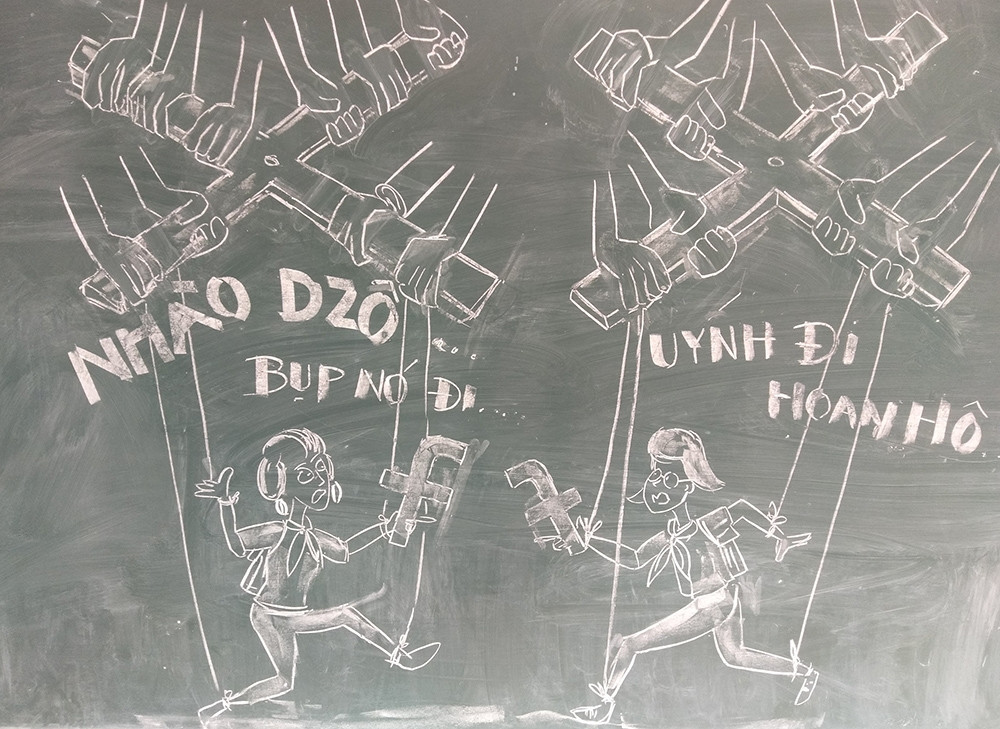 NHÀO DZÔ ....
BỤP NÓ ĐI.....
UYNH ĐI
HOAN HÔ
f
f